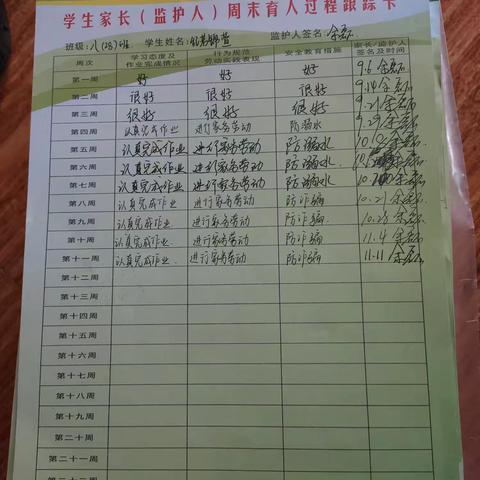 学生家长（监护人）周末育人过程跟踪卡
班级:八(28)班 学生姓名: 监护人签名:余磊
周次 学习态度及作业完成情况 行为规范劳动实践表现 安全教育措施 家长/监护人签名及时间
第一周 好 好 好 9.6 余磊
第二周 很好 很好 很好 9.14 余磊
第三周 很好 很好 很好 9.21 余磊
第四周 认真完成作业 进行家务劳动 防溺水 9.29 余磊
第五周 认真完成作业 进行家务劳动 防溺水 余磊
第六周 认真完成作业 进行家务劳动 防溺水 余磊
第七周 认真完成作业 进行家务劳动 防溺水 余磊
第八周 认真完成作业 进行家务劳动 防诈骗 10.21 余磊
第九周 认真完成作业 进行家务劳动 防诈骗 10.28 余磊
第十周 认真完成作业 进行家务劳动 防诈骗 11.4 余磊
第十一周 认真完成作业 进行家务劳动 防诈骗 11.11 余磊
第十二周
第十三周
第十四周
第十五周
第十六周
第十七周
第十八周
第十九周
第二十周
第二十一周